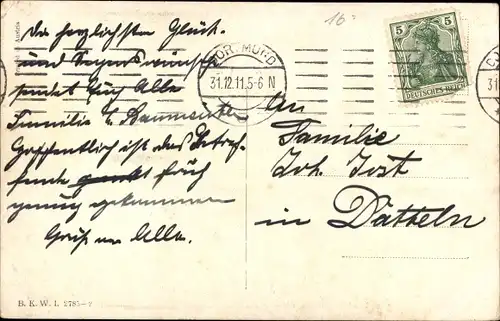 Die herzlichsten Glück-
und Segenswünsche
sendet Euch Alle
Familie
Hoffentlich ist das Betref-
fende früh
genug gekommen
Gruß an Alle.
DORTMUND
31.12.11.5-6 N
5 5
DEUTSCHES REICH
16
An
Familie
Joh. Jost
in Datteln
B. K. W. I. 2785-7